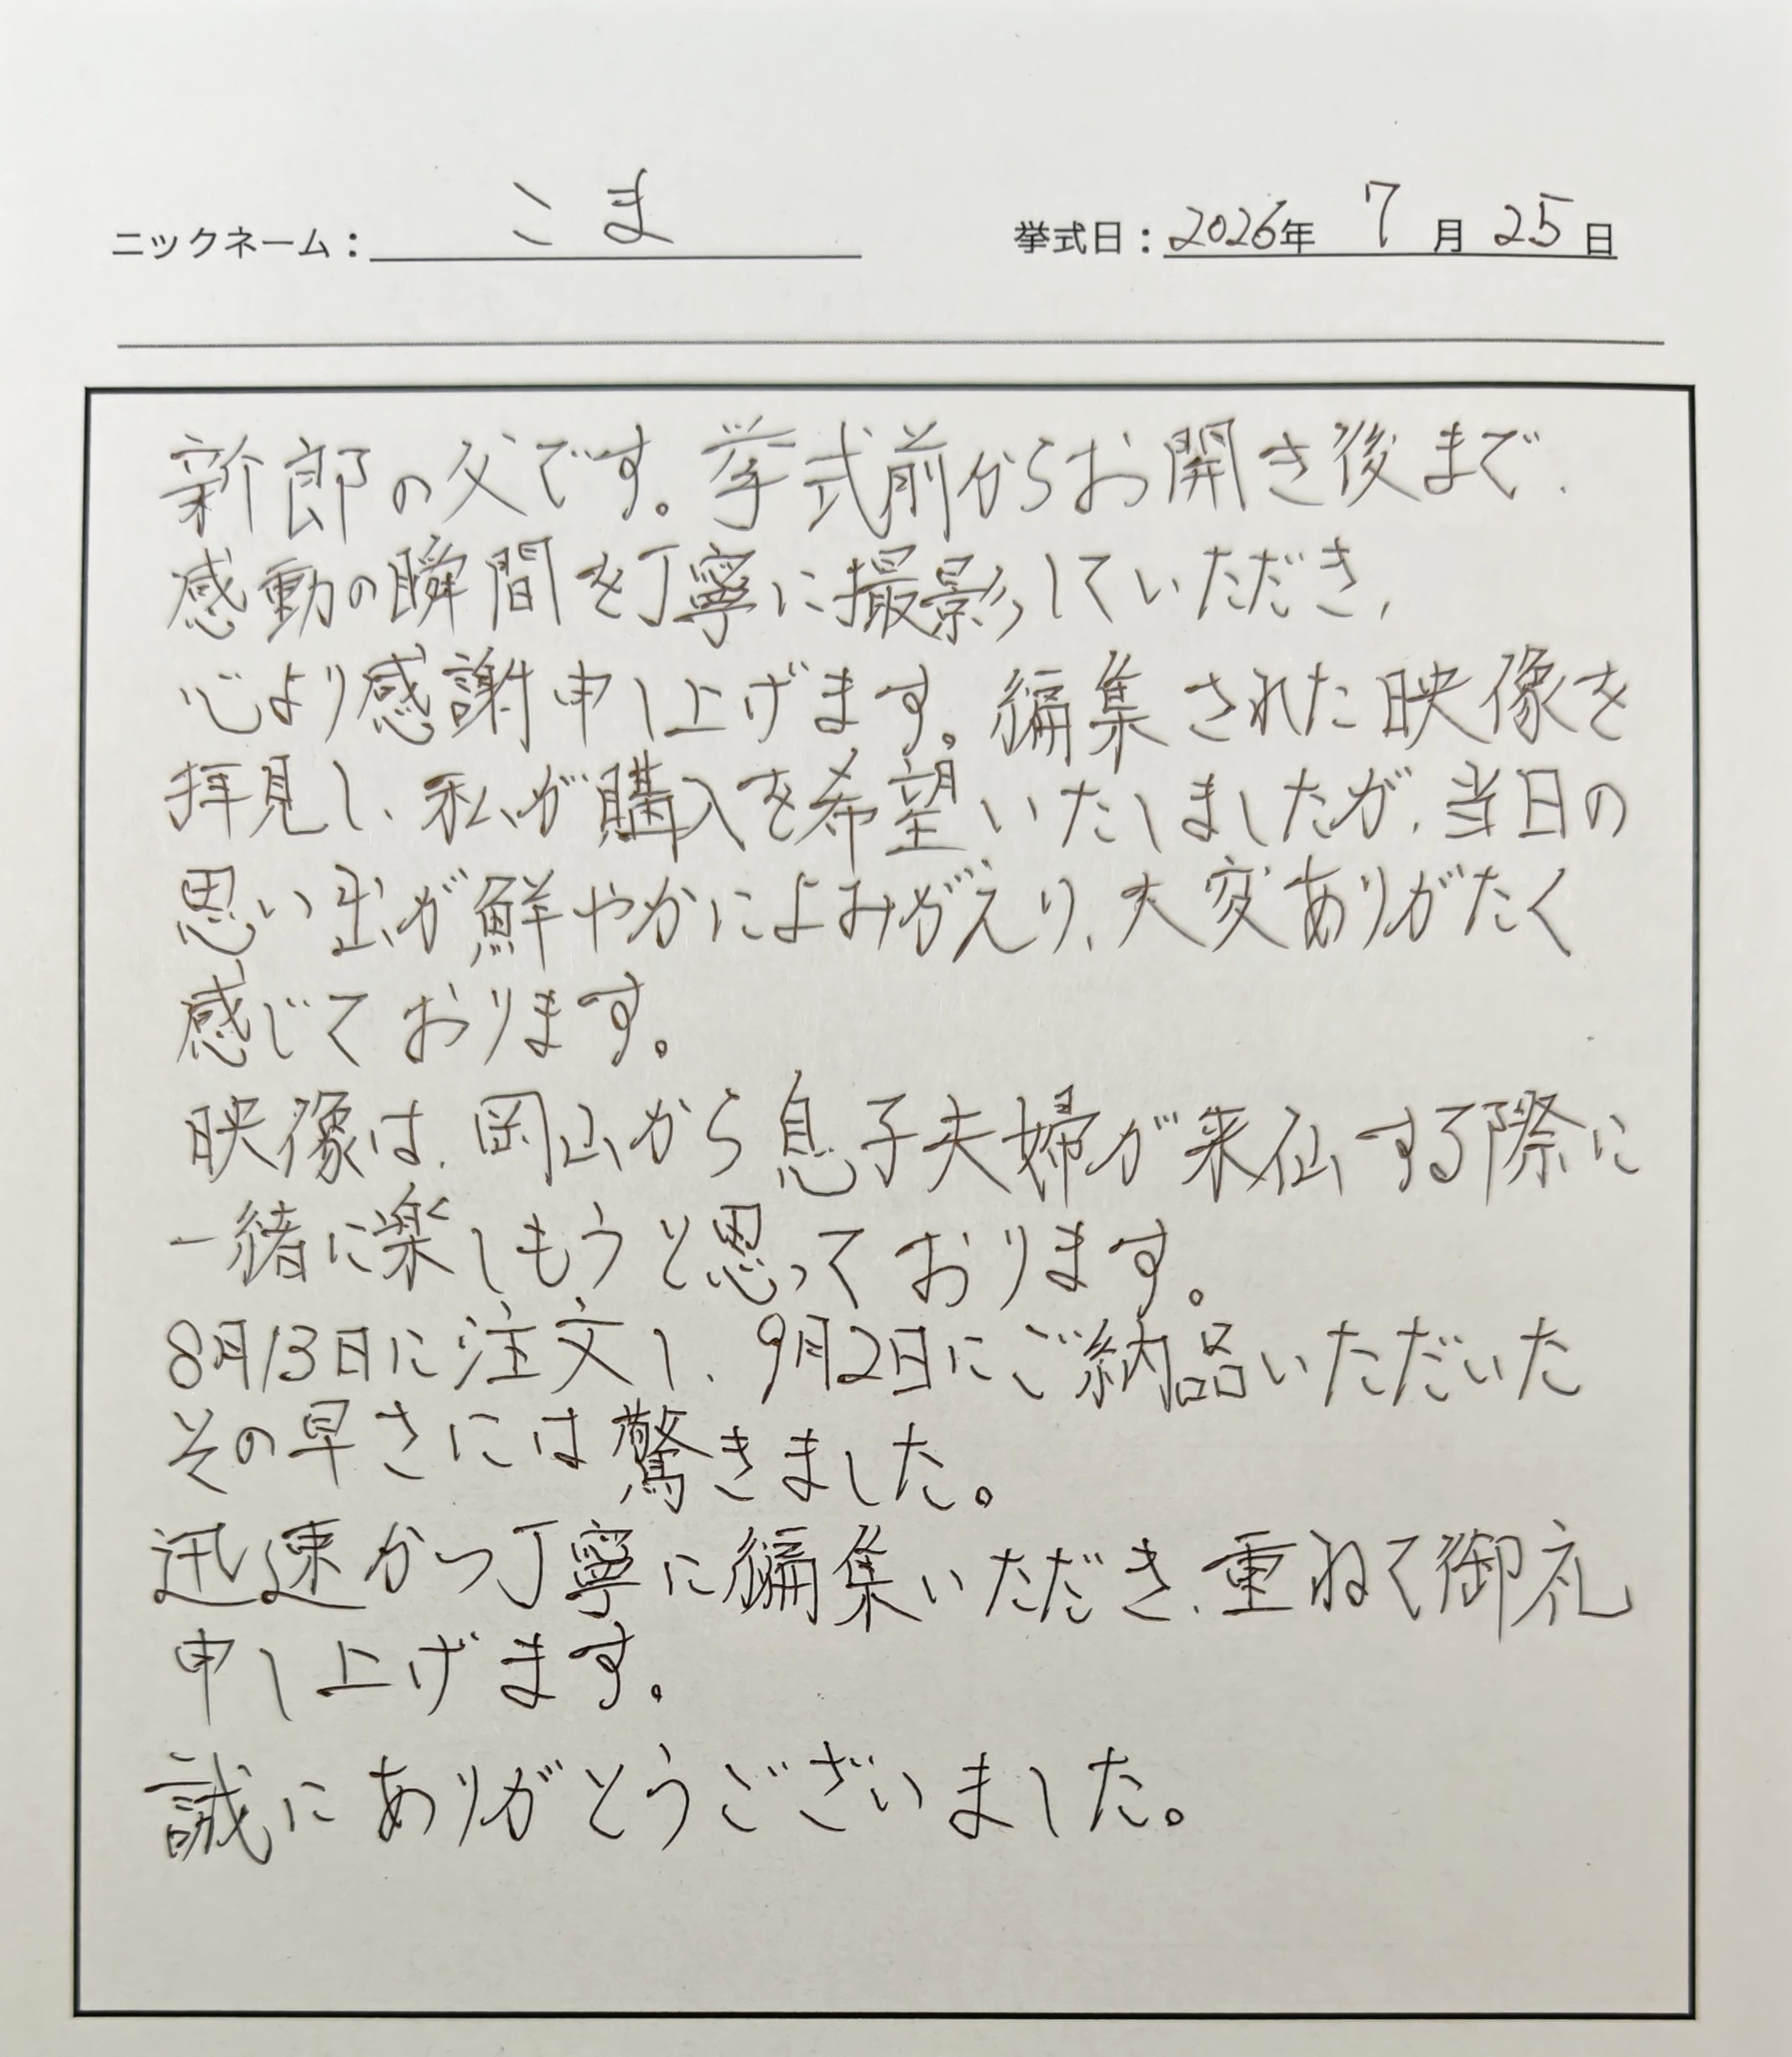 ニックネーム：こま 挙式日：2026年 7月 25日
新郎の父です。挙式前からお開き後まで、
感動の瞬間を丁寧に撮影していただき、
心より感謝申し上げます。編集された映像を
拝見し、私が購入を希望いたしましたが、当日の
思い出が鮮やかによみがえり、大変ありがたく
感じております。
映像は、岡山から息子夫婦が来仙する際に
一緒に楽しもうと思っております。
8月13日に注文し、9月2日にご納品いただいた
その早さには驚きました。
迅速かつ丁寧に編集いただき、重ねて御礼
申し上げます。
誠にありがとうございました。